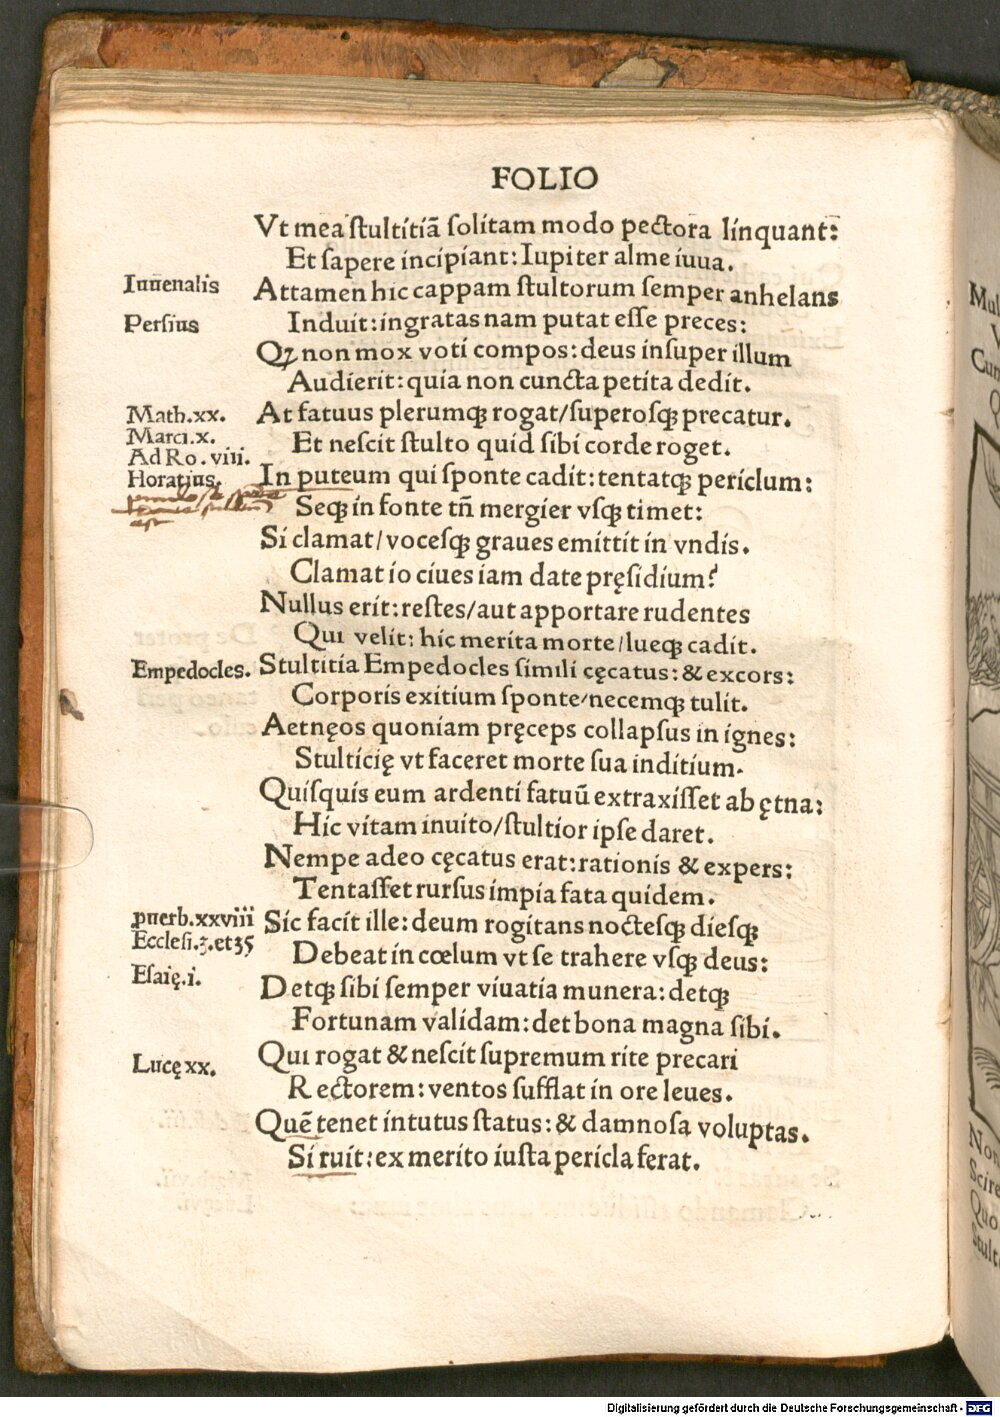 FOLIO
Vt mea ſtultitiā ſolitam modo pectora linquant:
Et ſapere incipiant: Iupiter alme iuua.
Iuuenalis
Attamen hic cappam ſtultorum ſemper anhelans
Perſius
Induit: ingratas nam putat eſſe preces:
Qꝫ non mox voti compos: deus inſuper illum
Audierit: quia non cuncta petita dedit.
Math.xx.
At fatuus plerumqꝫ rogat/ſuperoſqꝫ precatur.
Marci.x.
Et neſcit ſtulto quid ſibi corde roget.
Ad Ro.viii.
Horatius.
In puteum qui ſponte cadit: tentatqꝫ periclum:
Seqꝫ in fonte tñ mergier vſqꝫ timet:
Si clamat/voceſqꝫ graues emittit in vndis.
Clamat io ciues iam date pręſidium?
Nullus erit: reſtes/aut apportare rudentes
Qui velit: hic merita morte/lueqꝫ cadit.
Empedocles.
Stultitia Empedocles ſimili cęcatus: & excors:
Corporis exitium ſponte/necemqꝫ tulit.
Aetnęos quoniam pręceps collapſus in ignes:
Stulticię vt faceret morte ſua inditium.
Quiſquis eum ardenti fatuū extraxiſſet ab ętna:
Hic vitam inuito/ſtultior ipſe daret.
Nempe adeo cęcatus erat: rationis & expers:
Tentaſſet rurſus impia fata quidem.
ꝓuerb.xxviii
Sic facit ille: deum rogitans nocteſqꝫ dieſqꝫ
Eccleſi.3.et 35
Debeat in cœlum vt ſe trahere vſqꝫ deus:
Eſaię.i.
Detqꝫ ſibi ſemper viuatia munera: detqꝫ
Fortunam validam: det bona magna ſibi.
Lucę xx.
Qui rogat & neſcit ſupremum rite precari
Rectorem: ventos ſufflat in ore leues.
Quē tenet intutus ſtatus: & damnoſa voluptas.
Si ruit: ex merito iuſta pericla ferat.
Mul
V
Cum
Q
Non
Scire
Quo
Stult
Digitalisierung gefördert durch die Deutsche Forschungsgemeinschaft - DFG